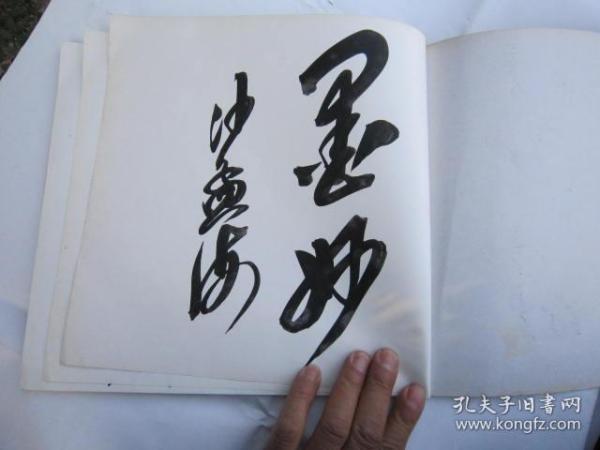 墨妙
沙孟海
孔夫子旧書网
www.kongfz.com